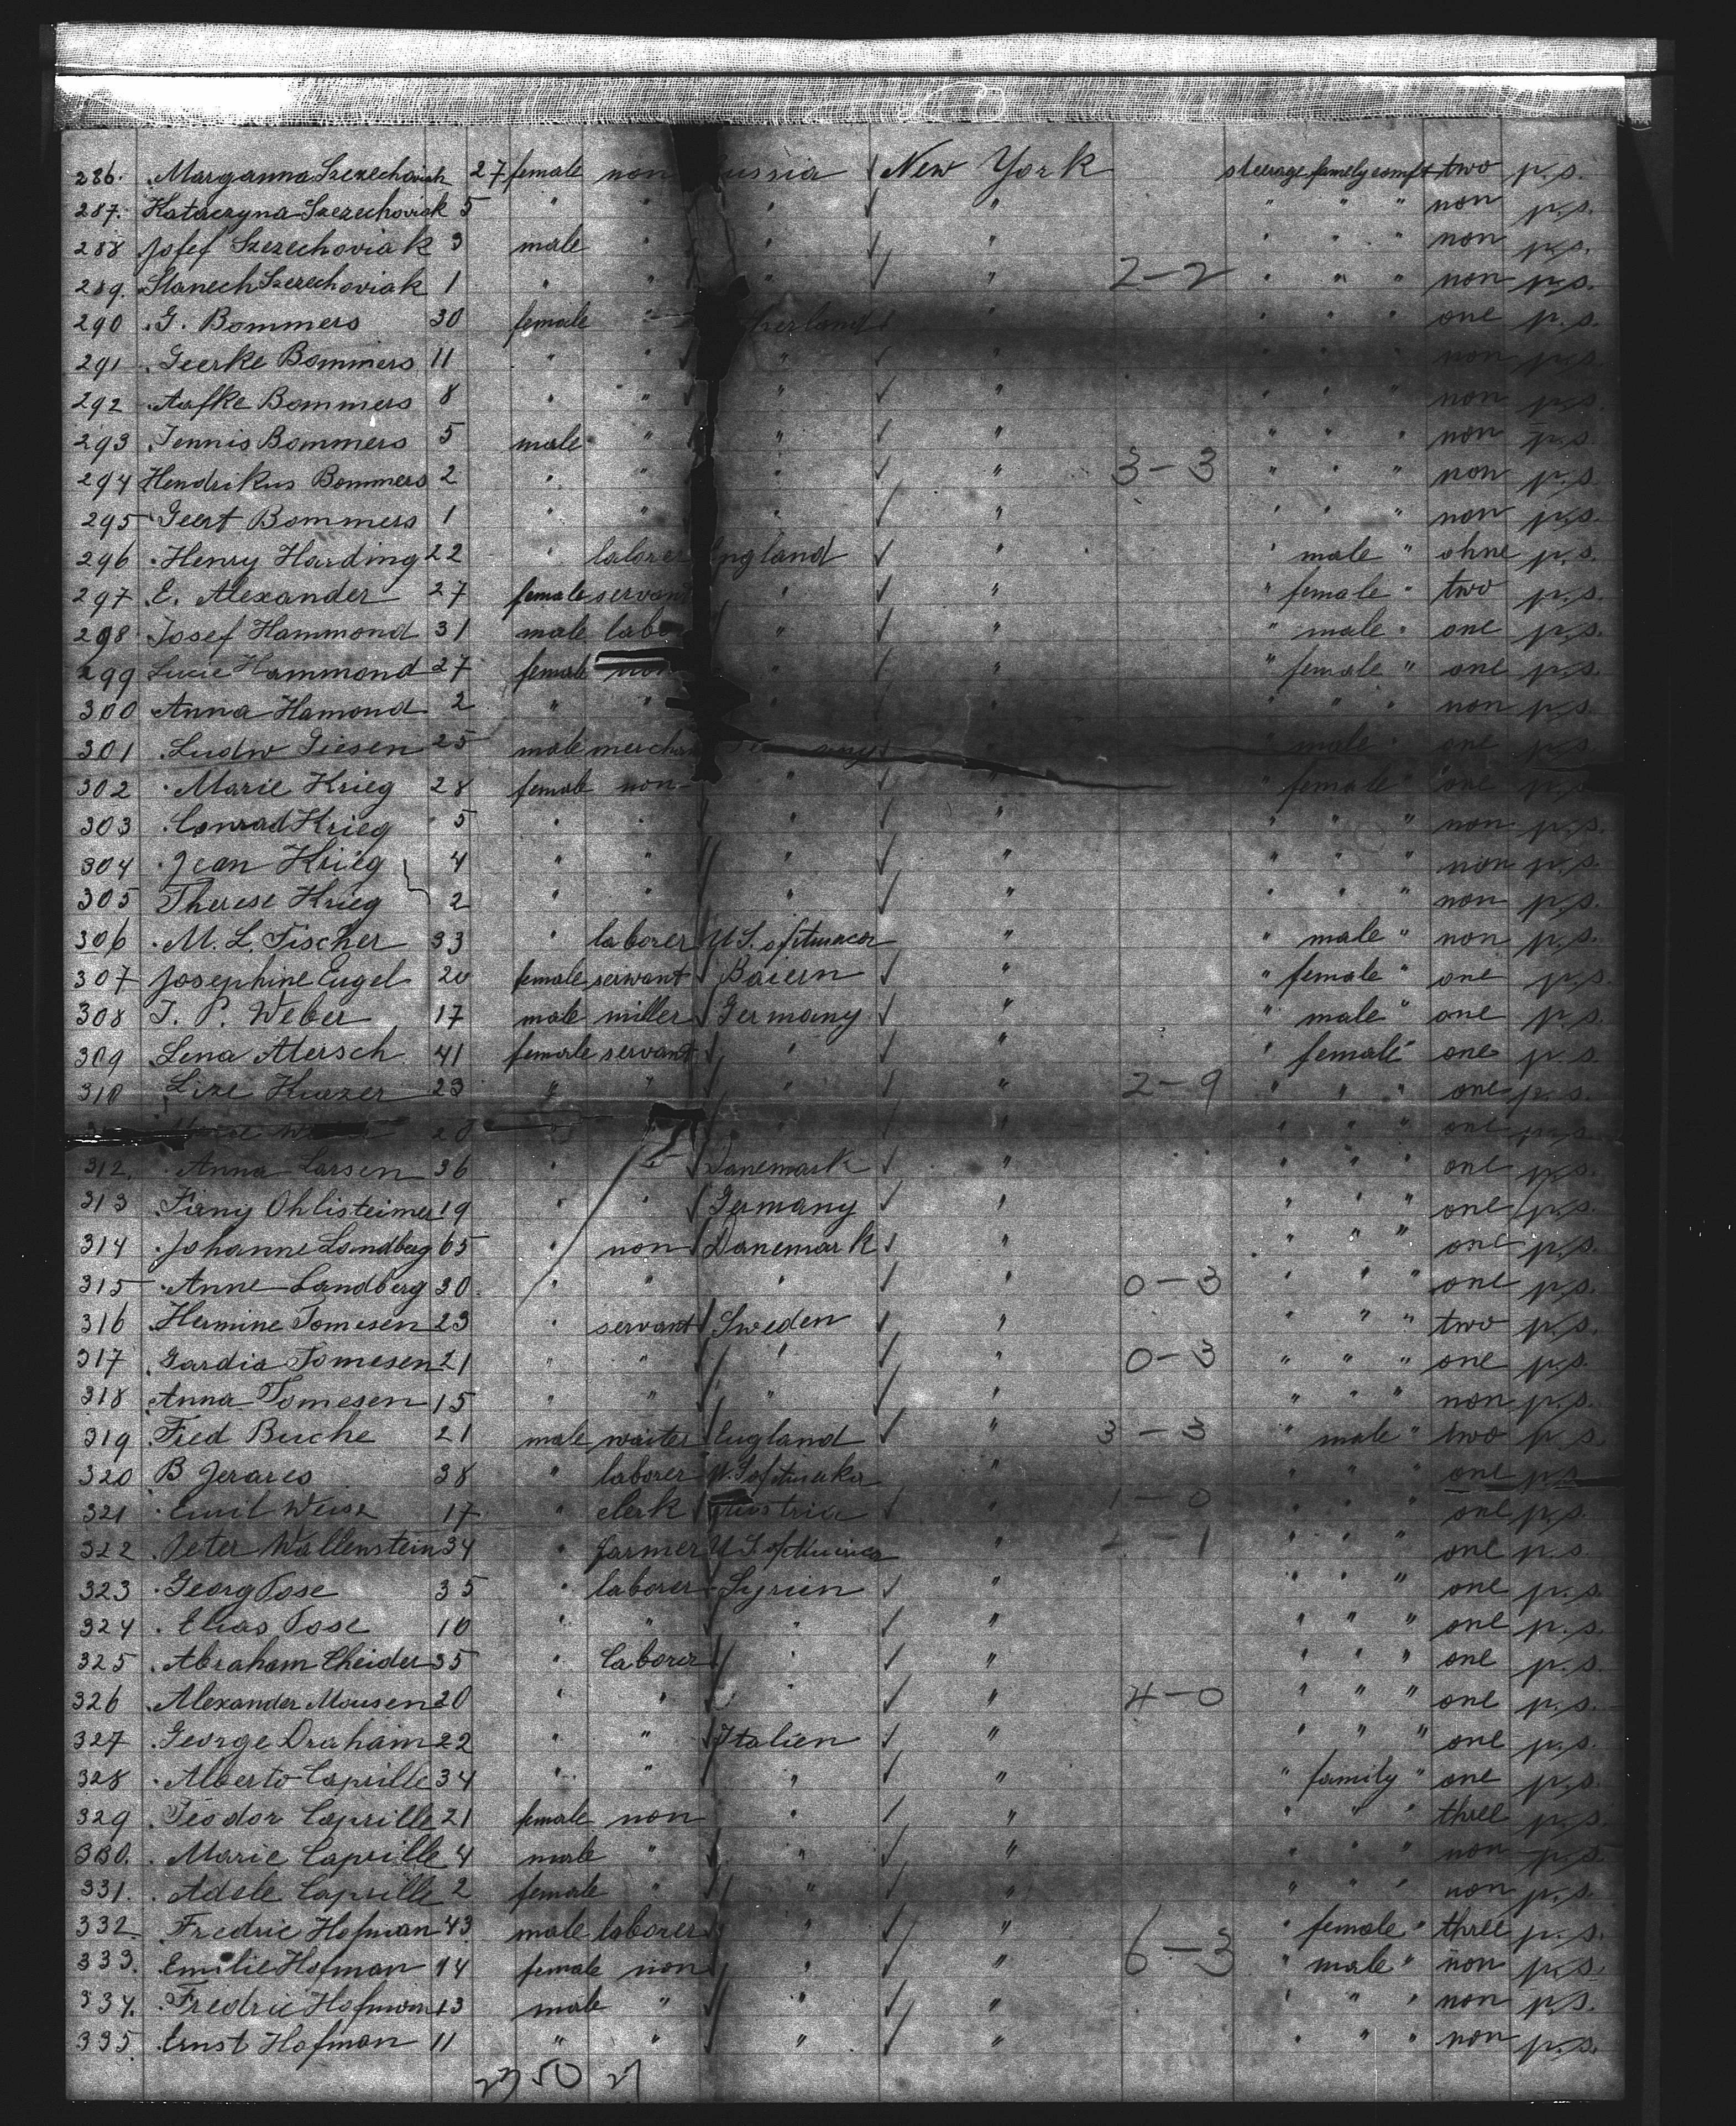 286. Marganna Szezechoviak 27 female non ussia √ New York steerage family comft two p.s.
287. Kataczyna Szezechoviak 5 " " " √ " " " " non p.s.
288 Josef Szezechoviak 3 male " " √ " " " " non p.s.
289. Stanech Szezechoviak 1 " " " √ " 2-2 " " " non p.s.
290 G. Bommers 30 female " therland √ " " " " one p.s.
291 Geerke Bommers 11 " " " √ " " " " non p.s.
292 Aafke Bommers 8 " " " √ " " " " non p.s.
293 Tennis Bommers 5 male " " √ " " " " non p.s.
294 Hendrikus Bommers 2 " " " √ " 3-3 " " " non p.s.
295 Geert Bommers 1 " " " √ " " " " non p.s.
296 Henry Harding 22 " laborer England √ " " male " ohne p.s.
297 E. Alexander 27 female servant " √ " " female " two p.s.
298 Josef Hammond 31 male labo " √ " " male " one p.s.
299 Lucie Hammond 27 female non " √ " " female " one p.s.
300 Anna Hamond 2 " " " √ " " " " non p.s.
301 Ludw Giesen 25 male merchan Germany √ " " male " one p.s.
302 Marie Krieg 28 female non " √ " " female " one p.s.
303 Conrad Krieg 5 " " " √ " " " " non p.s.
304 Jean Krieg 4 " " " √ " " " " non p.s.
305 Therese Krieg 2 " " " √ " " " " non p.s.
306 M. L. Fischer 33 " laborer U.S. of America " " male " non p.s.
307 Josephine Eugel 20 female servant √ Baiern √ " " female " one p.s.
308 J. P. Weber 17 male miller √ Germany √ " " male " one p.s.
309 Lena Atersch 41 female servant √ " √ " " female " one p.s.
310 Lize Kuazer 23 " " √ " √ " 2-9 " " " one p.s.
20 " " √ " " " " one p.s.
312. Anna Larsen 36 " √ Danemark √ " " " " one p.s.
313 Fieny Ohlisteimer 19 " " √ Germany √ " " " " one p.s.
314 Johanne Landberg 65 " non √ Danemark √ " " " " one p.s.
315 Anne Landberg 30 " " " √ " 0-3 " " " one p.s.
316 Hermine Tomesen 23 " servant √ Sweden √ " " " " two p.s.
317 Gardia Tomesen 21 " " √ " √ " 0-3 " " " one p.s.
318 Anna Tomesen 15 " " √ " √ " " " " non p.s.
319 Fred Buche 21 male waiter √ England √ " 3-3 " male " two p.s.
320 B Jerares 38 " laborer U.S. of America " " " " one p.s.
321 Emil Weisz 17 " clerk Austria √ " 1-0 " " " one p.s.
322 Peter Wallenstein 34 " farmer U.S. of America " -1 " " " one p.s.
323 Georg Tose 35 " laborer Syrien √ " " " " one p.s.
324 Elias Tose 10 " " √ " √ " " " " one p.s.
325 Abraham Cheider 35 " laborer √ " √ " " " " one p.s.
326 Alexander Mousen 20 " " √ " √ " 4-0 " " " one p.s.
327 George Draham 22 " " √ Italien √ " " " " one p.s.
328 Alberto Caprille 34 " " √ " √ " " family " one p.s.
329 Teodor Caprille 21 female non " √ " " " " three p.s.
330. Marie Caprille 4 male " √ " √ " " " " non p.s.
331. Adele Caprille 2 female " √ " √ " " " " non p.s.
332 Fredric Hofman 43 male laborer √ " √ " " female " three p.s.
333. Emilie Hofman 14 female non √ " √ " 6-3 " male " non p.s.
334. Fredric Hofman 13 male " √ " √ " " " " non p.s.
335. Ernst Hofman 11 " " √ " √ " " " " non p.s.
50